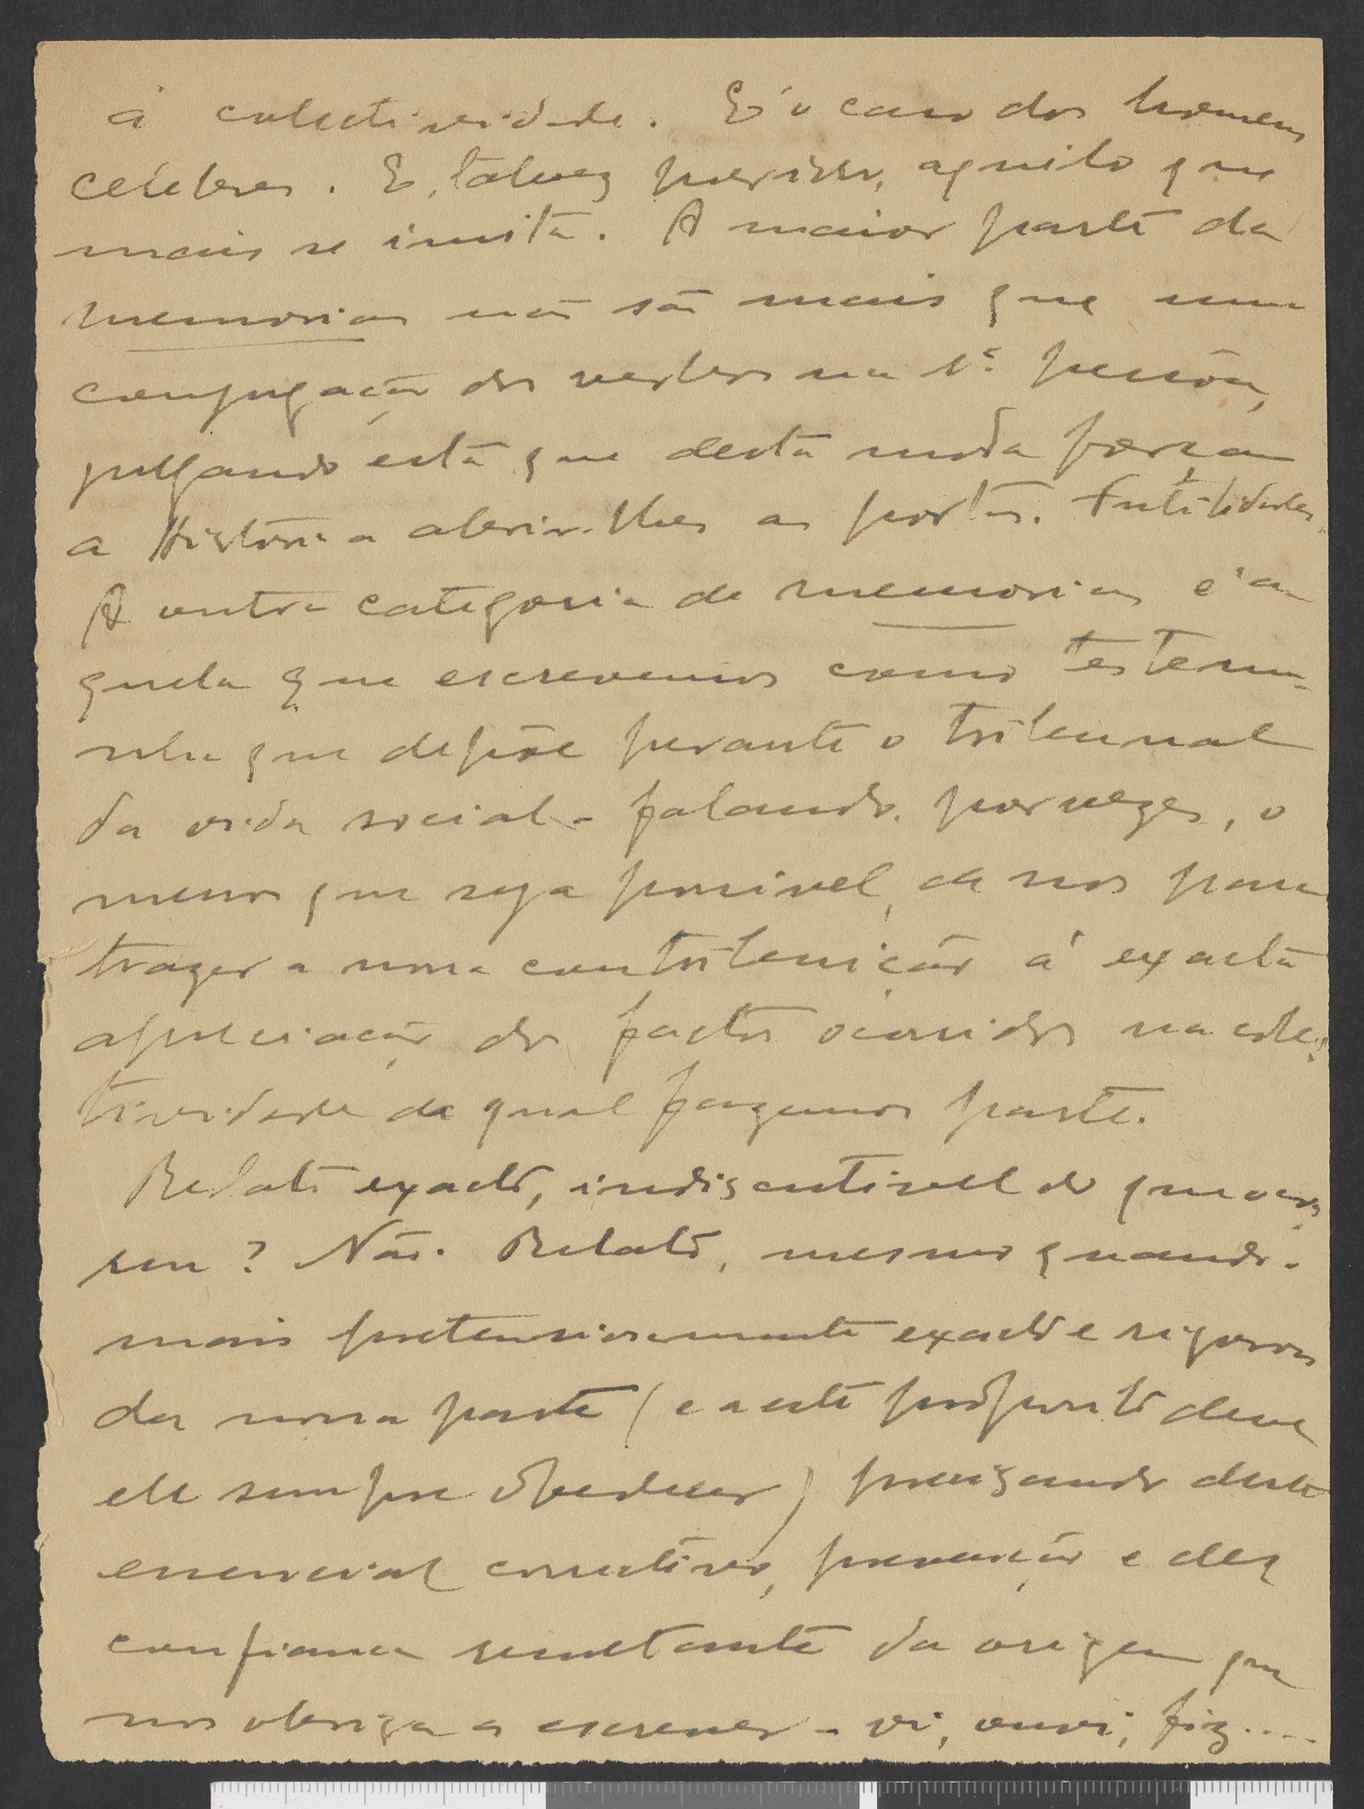 á colectividade. É o caso dos homens
celebres. E, talvez por isso, aquilo que
mais se imita. A maior parte da
memorias não são mais que uma
conjugação dos verbos na 1ª pessôa,
julgando esta que desta moda forçam
a Historia a abrir-lhes as portas. Futilidades.
A outra categoria de memorias é a-
quela que escrevemos como testemu-
nha que depõe perante o tribunal
da vida social - falando, por vezes, o
menos que seja possivel, de nos para
trazer a nossa contribuição á exacta
apreciação dos factos ocorridos na colec-
tividade da qual fazemos parte.
Relato exacto, indiscutivel do que ocor-
reu? Não. Relato, mesmo quando
mais pretensiosamente exacto e rigoroso
da nossa parte (e a este proposito deve
ele sempre obedecer) precisando deste
essencial correctivo, prevenção e des
confiança resultante da origem que
nos obriga a escrever - vi, ouvi, fiz....